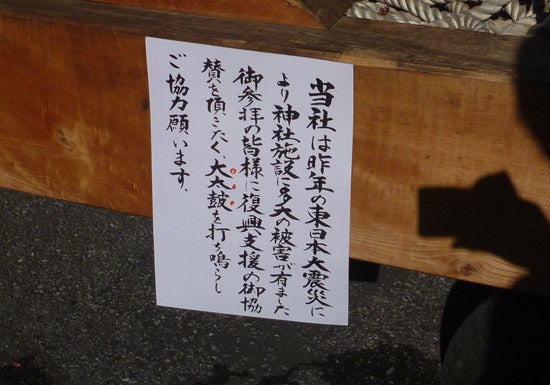 当社は昨年の東日本大震災に
より神社施設に多大の被害が有ました
御参拝の皆様に復興支援の御協
賛を頂きたく、大太鼓を打ち鳴らし
ご協力願います、